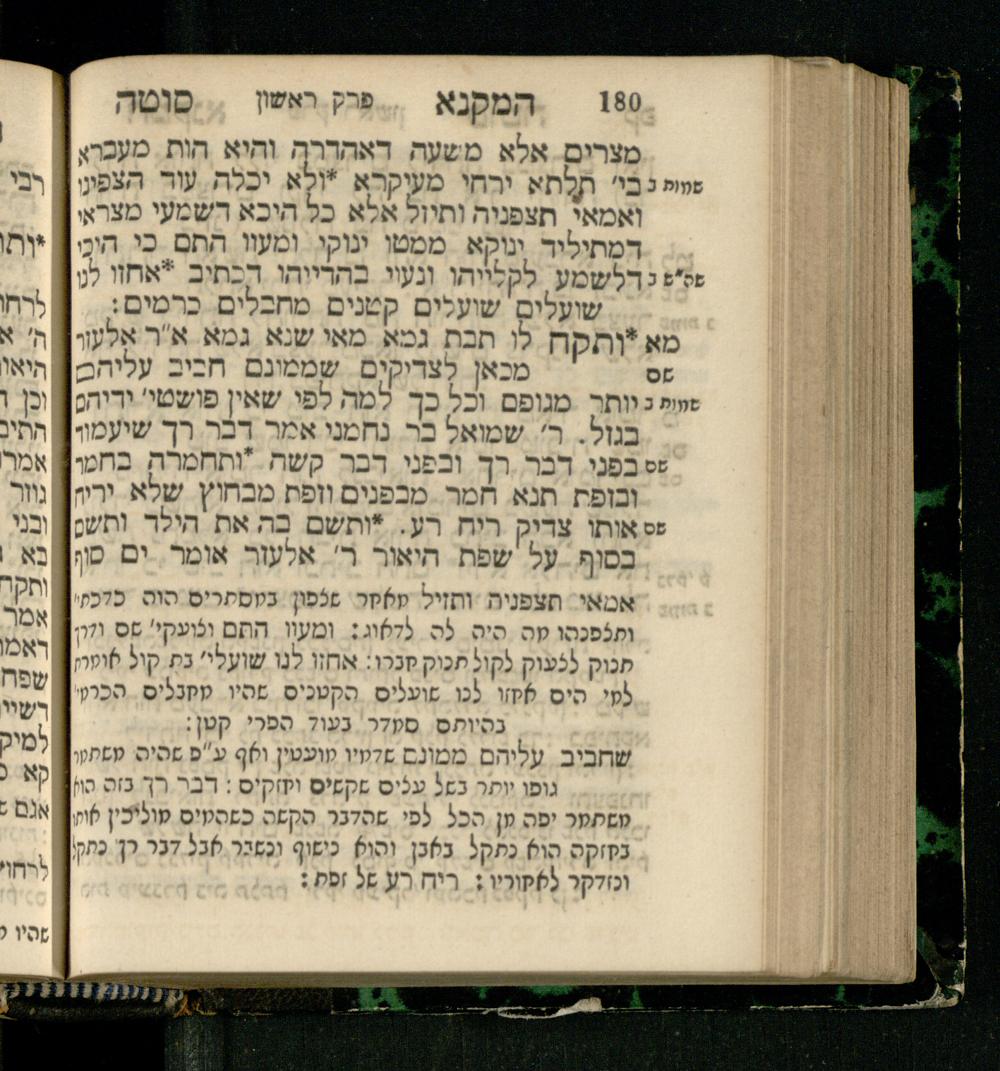 180 המקנא פרק ראשון סוטה
מצרים אלא משעה דאהדרה והיא הות מעברא
שמות ב בי׳ תלתא ירחי מעיקרא *ולא יכלה עוד הצפינו
ואמאי תצפניה ותיזל אלא כל היכא דשמעי מצראי
דמתיליד ינוקא ממטו ינוקי ומעוו התם כי היכי
שה״ש ב דלשמע לקלייהו ונעוי בהדייהו דכתיב *אחזו לנו
שועלים שועלים קטנים מחבלים כרמים:
מא *ותקח לו תבת גמא מאי שנא גמא א״ר אלעזר
שם מכאן לצדיקים שממונם חביב עליהם
שמות ב יותר מגופם וכל כך למה לפי שאין פושטי׳ ידיהם
בגזל. ר׳ שמואל בר נחמני אמר דבר רך שיעמוד
שם בפני דבר רך ובפני דבר קשה *ותחמרה בחמר
ובזפת תנא חמר מבפנים וזפת מבחוץ שלא יריח
שם אותו צדיק ריח רע. *ותשם בה את הילד ותשם
בסוף על שפת היאור ר׳ אלעזר אומר ים סוף
אמאי תצפניה ותזיל מאחר שצפון במסתרים הוה כדכתי׳
ותצפנהו מה היה לה לדאוג: ומעוו התם וצועקי׳ שם ודרך
תנוק לצעוק לקול תנוק חברו: אחזו לנו שועלי׳ בת קול אומרת
למי הים אחזו לנו שועלים הקטנים שהיו מחבלים הכרמי׳
בהיותם סמדר בעוד הפרי קטן:
שחביב עליהם ממונם שדמיו מועטין ואף ע״פ שהיה משתמר
גופו יותר בשל עצים שקשים וחזקים: דבר רך בזה הוא
משתמר יפה מן הכל לפי שהדבר הקשה כשהמים מוליכין אותו
בחזקה הוא נתקל באבן והוא כישוף ונשבר אבל דבר רך נתקל
ונזדקר לאחוריו: ריח רע של זפת: